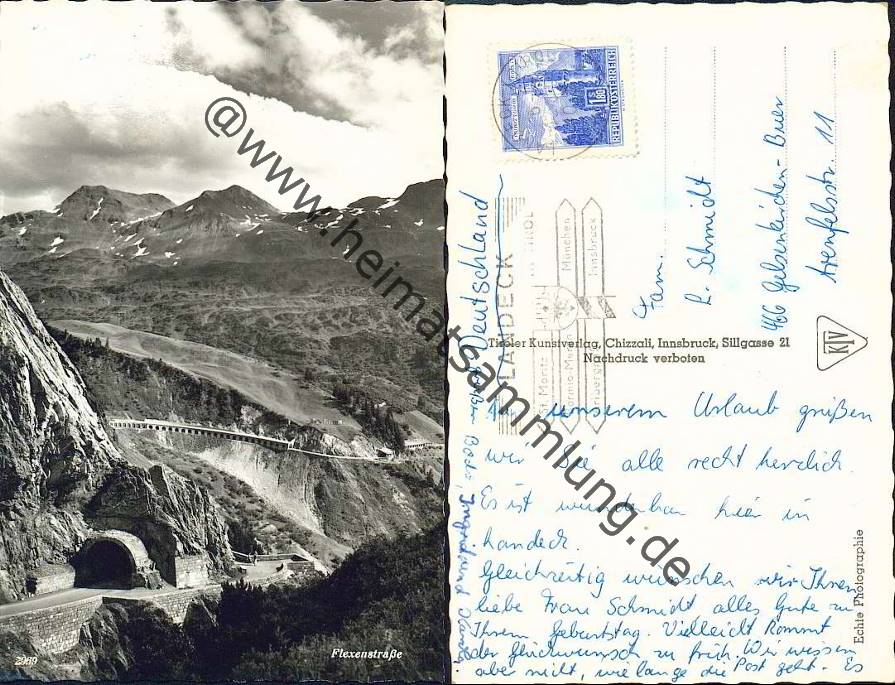 2969
Flexenstraße
@www.heimatsammlung.de
REPUBLIK ÖSTERREICH
S 1.80
LANDECK
TIROL
München
Innsbruck
St. Moritz
Deutschland
Fam.
R. Schmidt
466 Gelsenkirchen-Buer
str. 11
Tiroler Kunstverlag, Chizzali, Innsbruck, Sillgasse 21
Nachdruck verboten
KTV
Echte Photographie
unserem Urlaub grüßen
wir Sie alle recht herzlich.
Es ist wunderbar hier in
Landeck.
Gleichzeitig wünschen wir Ihnen
liebe Frau Schmidt alles Gute zu
Ihrem Geburtstag. Vielleicht kommt
der Glückwunsch zu früh. Wir wissen
aber nicht, wie lange die Post geht. Es